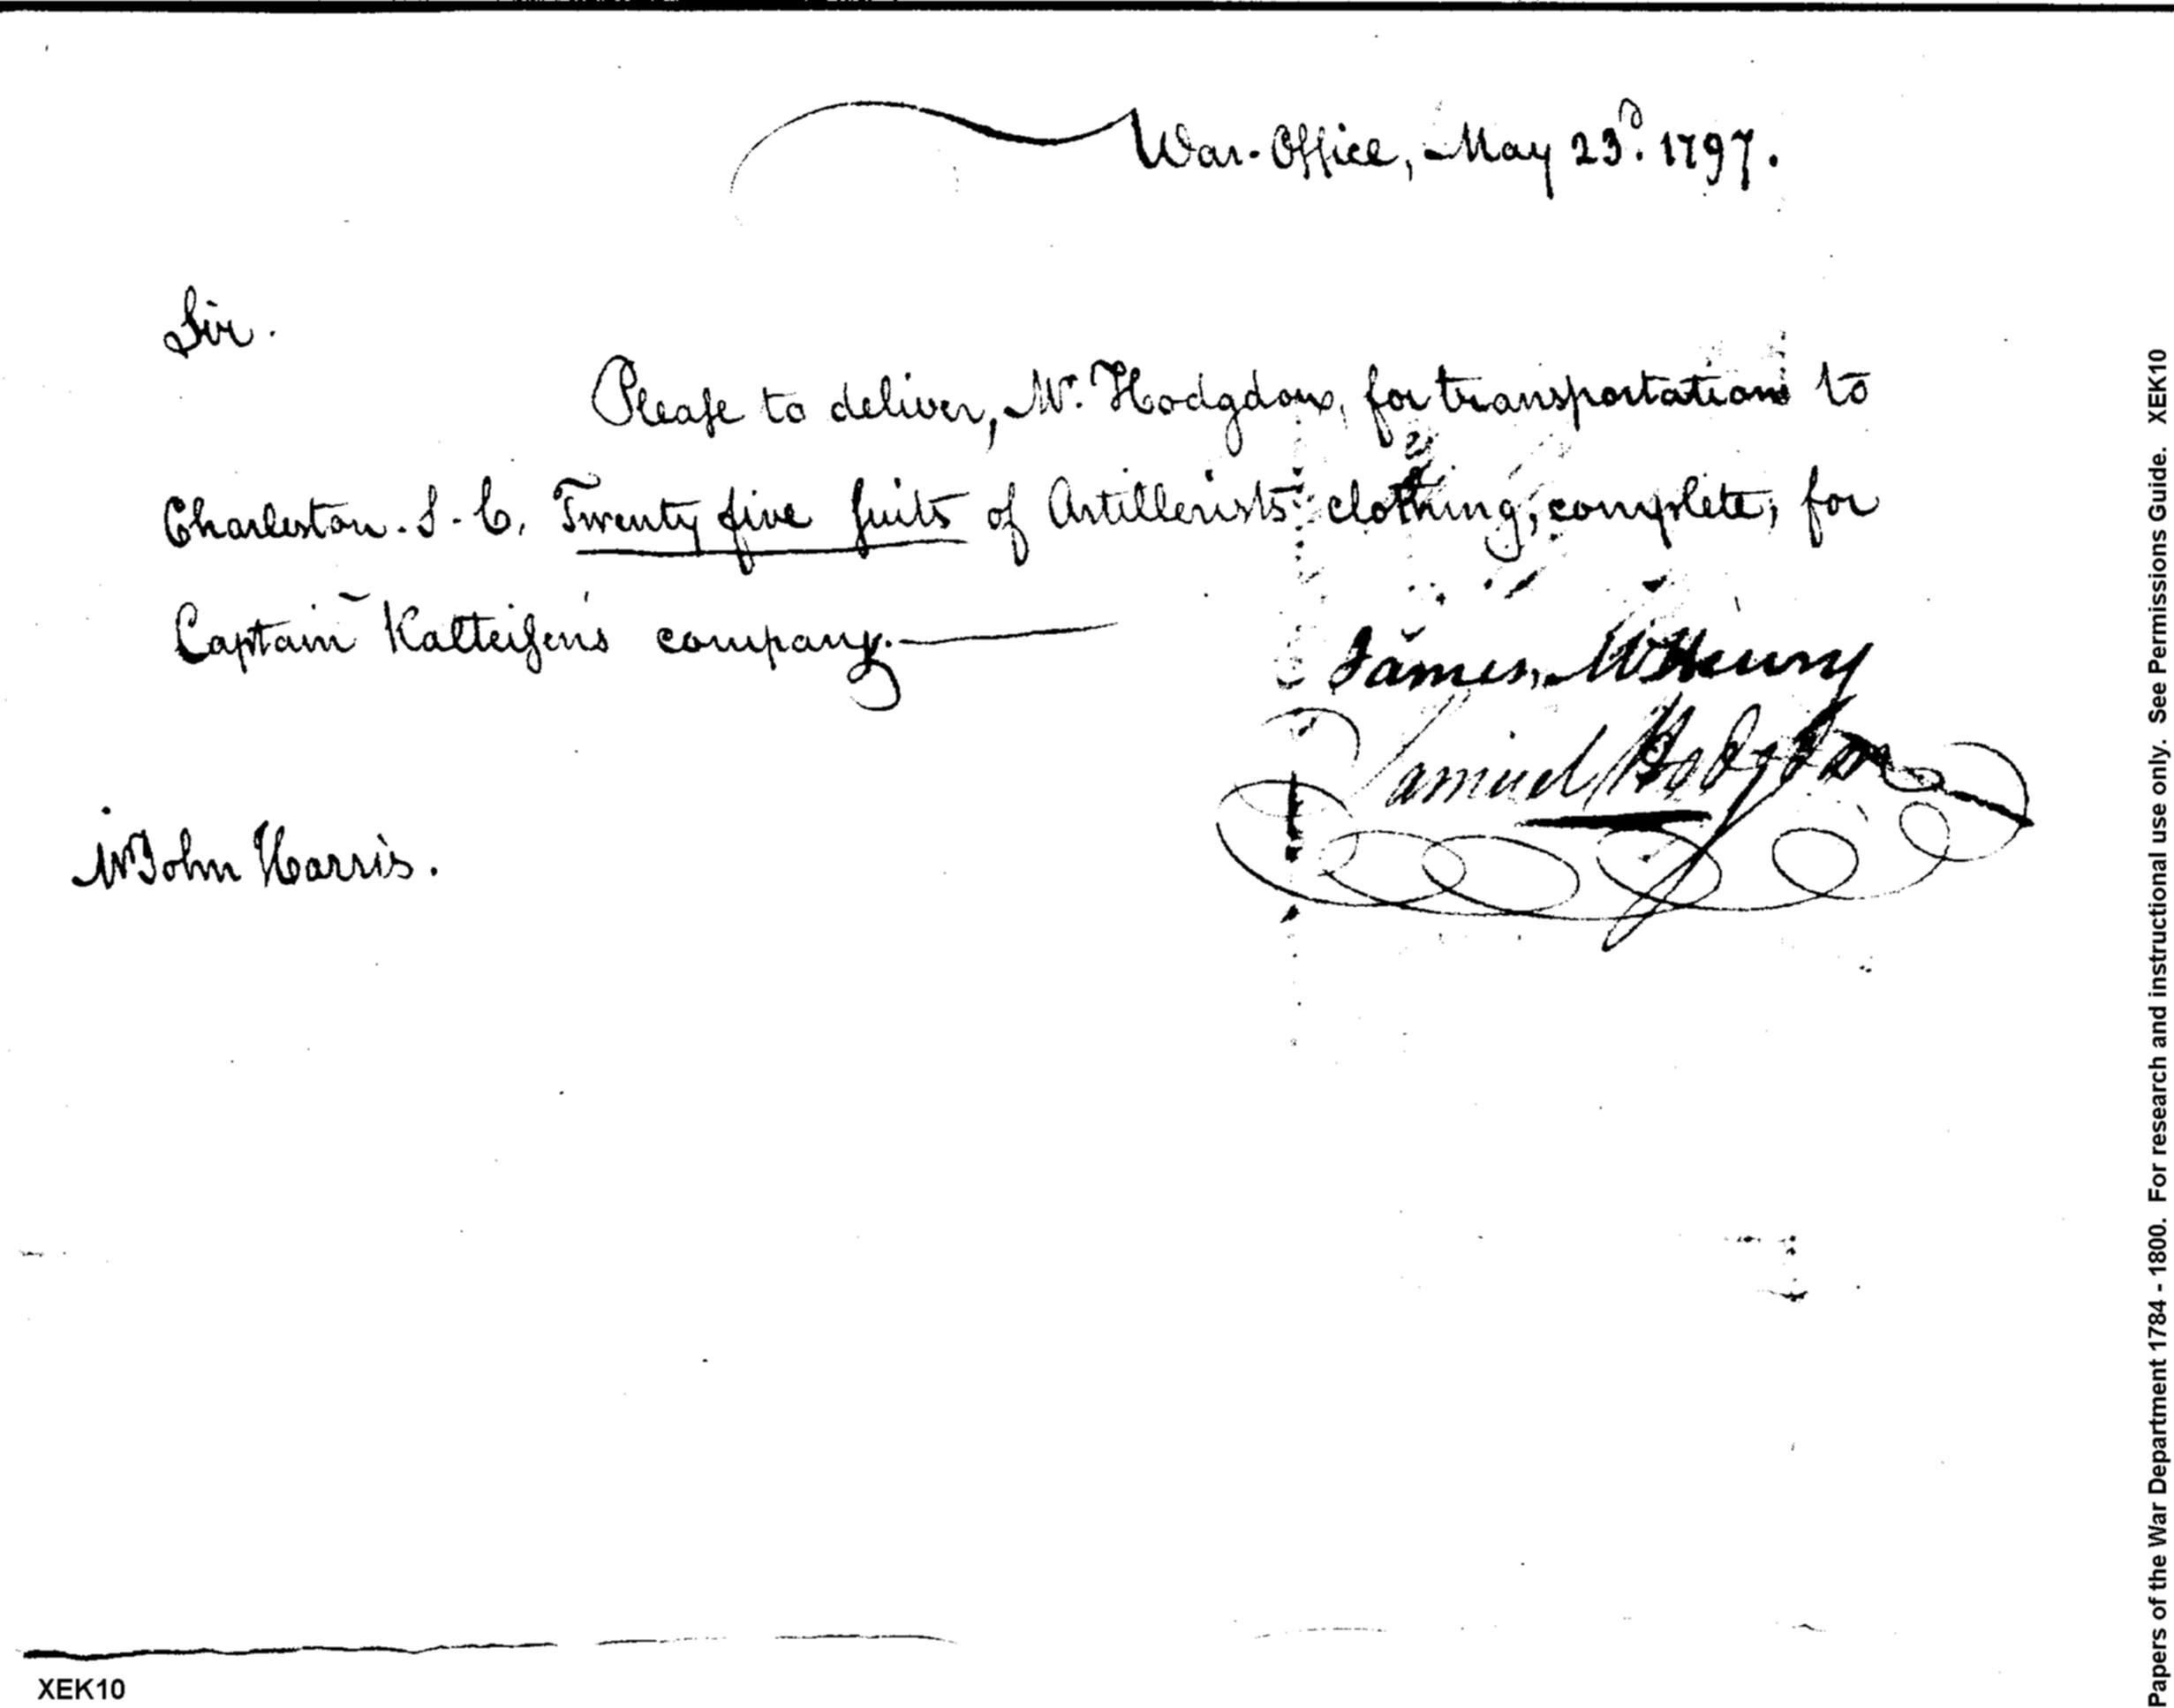 War-Office, May 23d. 1797.
Sir.
Please to deliver, Mr. Hodgdon, for transportation to
Charleston. S. C. Twenty five suits of Artillerists clothing, complete, for
Captain Kalteisen's company.
James McHenry
Samuel Hodgdon
Mr John Harris.
XEK10
Papers of the War Department 1784 - 1800. For research and instructional use only. See Permissions Guide. XEK10